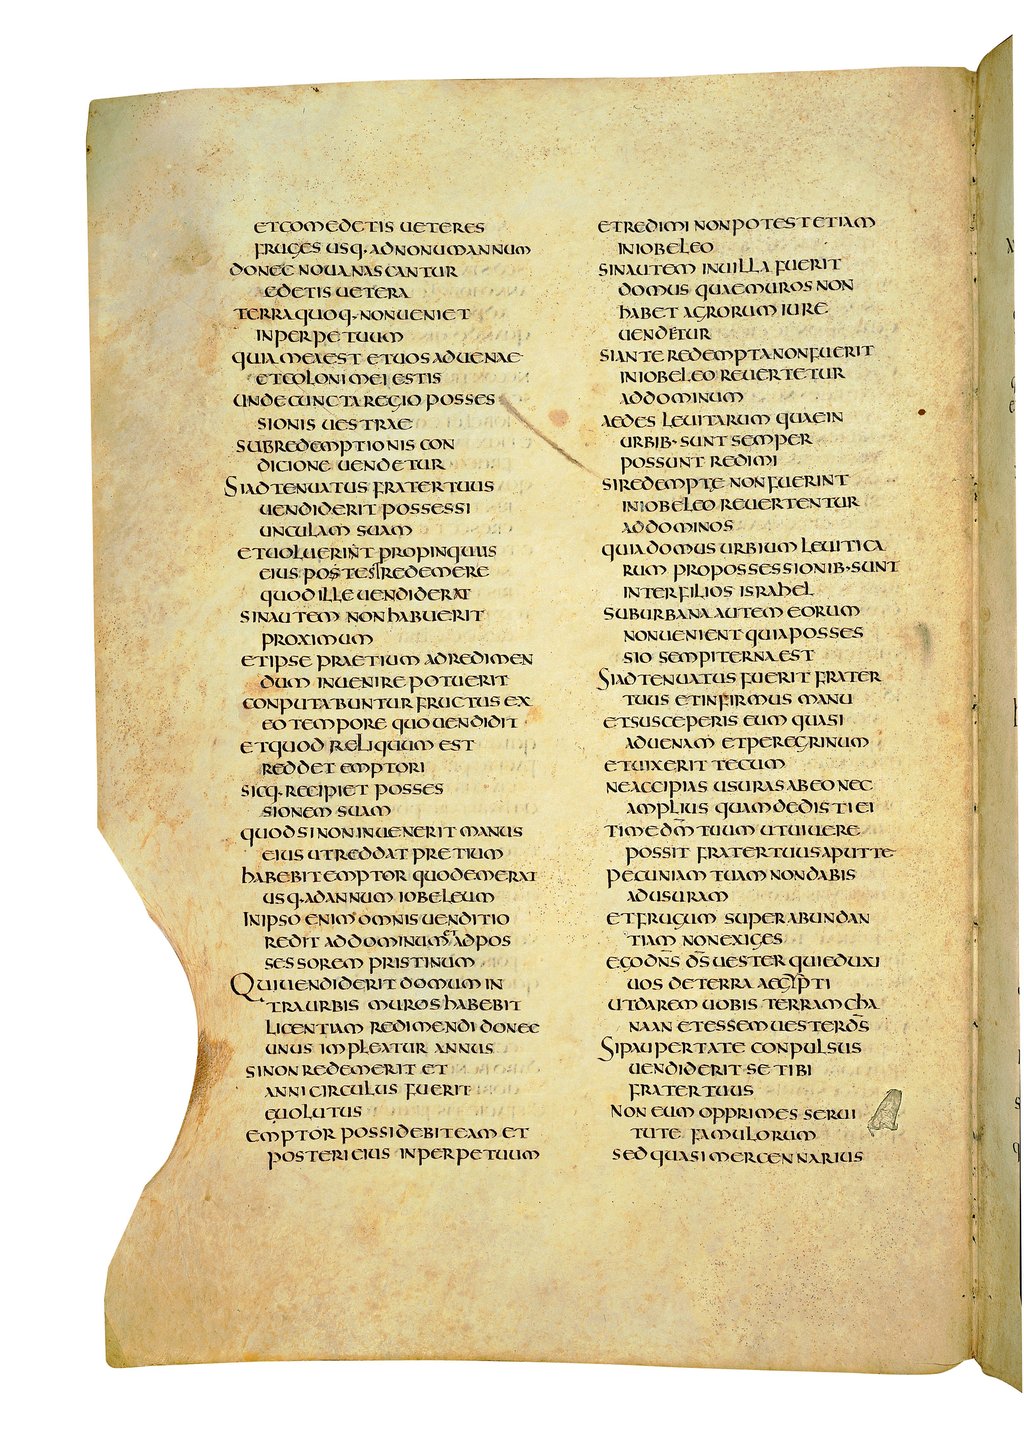 ETCOMEDETIS UETERES
FRUGES USQ· ADNONUMANNUM
DONEC NOUANASCANTUR
EDETIS UETERA
TERRAQUOQ· NONUENIET
INPERPETUUM
QUIAMEAEST ETUOSADUENAE
ETCOLONIMEI ESTIS
UNDECUNCTAREGIO POSSES
SIONIS UESTRAE
SUBREDEMPTIONIS CON
DICIONE UENDETUR
SIADTENUATUS FRATERTUUS
UENDIDERIT POSSESSI
UNCULAM SUAM
ETUOLUERINT PROPINQUUS
EIUS POSTEST REDEMERE
QUODILLEUENDIDERAT
SINAUTEM NONHABUERIT
PROXIMUM
ETIPSE PRAETIUM ADREDIMEN
DUM INUENIRE POTUERIT
CONPUTABUNTUR FRUCTUS EX
EO TEMPORE QUOUENDIDIT
ETQUOD RELIQUUM EST
REDDET EMPTORI
SICQ· RECIPIET POSSES
SIONEM SUAM
QUODSINONINUENERIT MANUS
EIUS UTREDDAT PRETIUM
HABEBIT EMPTOR QUODEMERAT
USQ· ADANNUM IOBELEUM
INIPSO ENIM OMNISUENDITIO
REDIT ADDOMINUM ET ADPOS
SESSOREM PRISTINUM
QUIUENDIDERIT DOMUM IN
TRAURBIS MUROS HABEBIT
LICENTIAM REDIMENDI DONEC
UNUS IMPLEATUR ANNUS
SINONREDEMERIT ET
ANNI CIRCULUS FUERIT
EUOLUTUS
EMPTOR POSSIDEBITEAM ET
POSTERIEIUS INPERPETUUM
ETREDIMI NONPOTEST ETIAM
INIOBELEO
SINAUTEM INUILLA FUERIT
DOMUS QUAEMUROS NON
HABET AGRORUM IURE
UENDETUR
SIANTE REDEMPTANONFUERIT
INIOBELEO REUERTETUR
ADDOMINUM
AEDES LEUITARUM QUAEIN
URBIB· SUNT SEMPER
POSSUNT REDIMI
SIREDEMPTE NONFUERINT
INIOBELEO REUERTENTUR
ADDOMINOS
QUIADOMUS URBIUM LEUITICA
RUM PROPOSSESSIONIB· SUNT
INTERFILIOS ISRAHEL
SUBURBANA AUTEM EORUM
NONUENIENT QUIAPOSSES
SIO SEMPITERNA EST
SIADTENUATUS FUERIT FRATER
TUUS ETINFIRMUS MANU
ETSUSCEPERIS EUM QUASI
ADUENAM ETPEREGRINUM
ETUIXERIT TECUM
NEACCIPIAS USURASABEO NEC
AMPLIUS QUAMDEDISTI EI
TIMEDM̄ TUUM UTUIUERE
POSSIT FRATERTUUSAPUTTE
PECUNIAM TUAM NONDABIS
ADUSURAM
ETFRUGUM SUPERABUNDAN
TIAM NONEXIGES
EGODN̄S D̄S UESTER QUIEDUXI
UOS DETERRA AEGYPTI
UTDAREM UOBIS TERRAM CHA
NAAN ETESSEM UESTERD̄S
SIPAUPERTATE CONPULSUS
UENDIDERIT SE TIBI
FRATERTUUS
NON EUM OPPRIMES SERUI
TUTE FAMULORUM
SED QUASI MERCENNARIUS